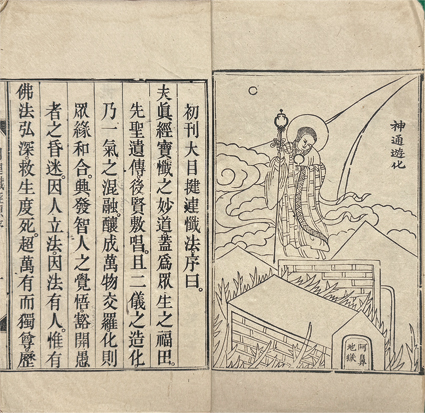 神通遊化
阿鼻
地獄
初刊大目揵連懺法序曰。
夫眞經寶懺之妙道。蓋爲衆生之福田。
先聖遺傳後賢敷唱。且二儀之造化
乃一氣之混融。釀成萬物交羅化則
眾緣和合。典發智人之覺悟。豁開愚
者之昏迷。因人立法。因法有人。惟有
佛法弘深。救生度死。超萬有而獨尊。歷